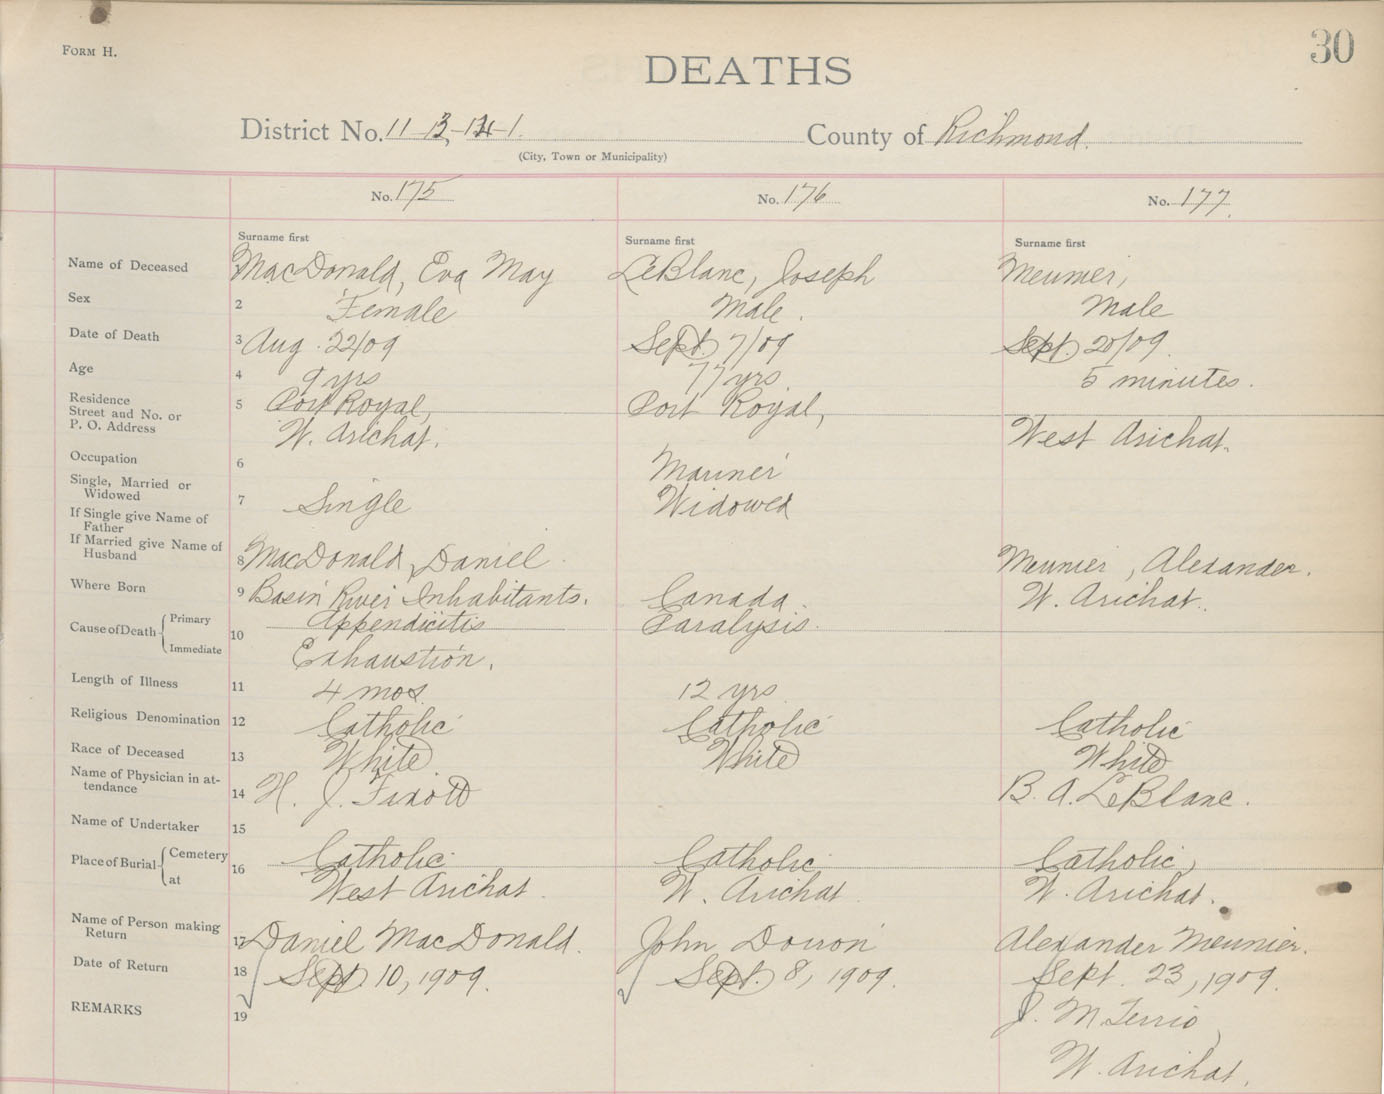 FORM H.
30
DEATHS
District No. 11-13,-14-1. County of Richmond.
(City, Town or Municipality)
No. 175
No. 176
No. 177.
Surname first
Surname first
Surname first
Name of Deceased MacDonald, Eva May LeBlanc, Joseph Meunier,
Sex 2 Female Male. Male
Date of Death 3 Aug. 22/09 Sept. 7/09 Sept. 20/09.
Age 4 9 yrs 77 yrs. 5 minutes.
Residence
Street and No. or
P. O. Address
5 Port Royal, Port Royal,
W. Arichat. West Arichat.
Occupation 6 Mariner
Single, Married or
Widowed
7 Single Widowed
If Single give Name of
Father
If Married give Name of
Husband
8 MacDonald, Daniel Meunier, Alexander.
Where Born 9 Basin River Inhabitants. Canada. W. Arichat.
Cause of Death Primary 10 Appendicitis Paralysis.
Immediate Exhaustion.
Length of Illness 11 4 mos. 12 yrs
Religious Denomination 12 Catholic Catholic Catholic
Race of Deceased 13 White White White
Name of Physician in at-
tendance
14 H. J. B. A. LeBlanc.
Name of Undertaker 15
Place of Burial Cemetery 16 Catholic Catholic Catholic,
at West Arichat. W. Arichat W. Arichat.
Name of Person making
Return
17 Daniel MacDonald. John Doiron Alexander Meunier.
Date of Return 18 Sept. 10, 1909. Sept. 8, 1909. Sept. 23, 1909.
REMARKS 19 J. M. Terrio,
W. Arichat.